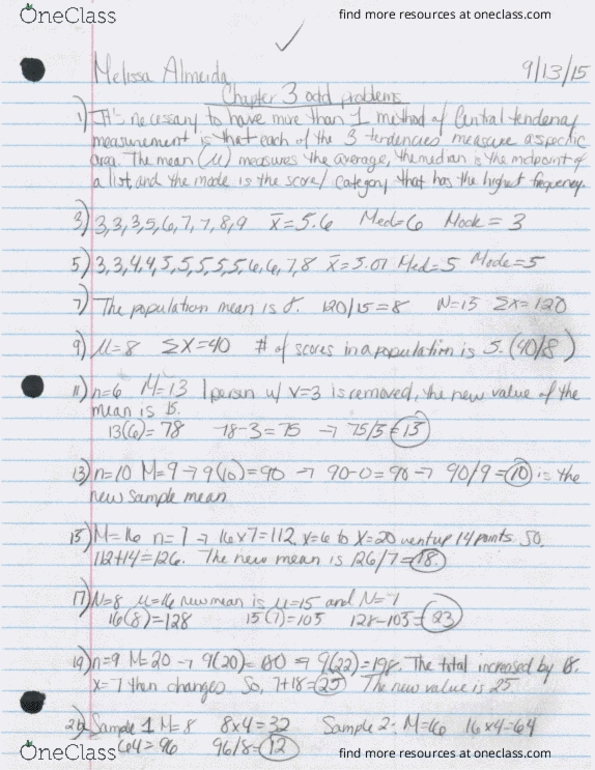 OneClass
find more resources at oneclass.com
Melissa Almeida 9/13/15
Chapter 3 odd problems
1) It's necessary to have more than 1 method of Central tendency
measurement is that each of the 3 tendencies measure a specific
area. The mean (μ) measures the average, the median is the midpoint of
a list, and the mode is the score/category that has the highest frequency.
3) 3,3,3,5,6,7,7,8,9 x̄=5.6 Med=6 Mode=3
5) 3,3,4,4,5,5,5,5,5,6,6,7,8 x̄=5.07 Med=5 Mode=5
7) The population mean is 8. 120/15=8 N=15 Σx=120
9) μ=8 ΣX=40 # of scores in a population is 5. (40/8)
11) n=6 M=13 1 person w/ v=3 is removed, the new value of the
mean is 15.
13(6)=78 78-3=75 → 75/5=15
13) n=10 M=9 → 9(10)=90 → 90-0=90 → 90/9=10 is the
new sample mean
15) M=16 n=7 → 16x7=112 x=6 to X=20 went up 14 points. So,
112+14=126. The new mean is 126/7=18.
17) N=8 μ=16 new mean is μ=15 and N=7
16(8)=128 15(7)=105 128-105=23
19) n=9 M=20 → 9(20)=180 → 9(22)=198. The total increased by 18.
x=7 then changes. So, 7+18=25 The new value is 25
Sample 1 M=8 8x4=32 Sample 2- M=16 16x4=64
64=96 96/8=12
OneClass
find more resources at oneclass.com